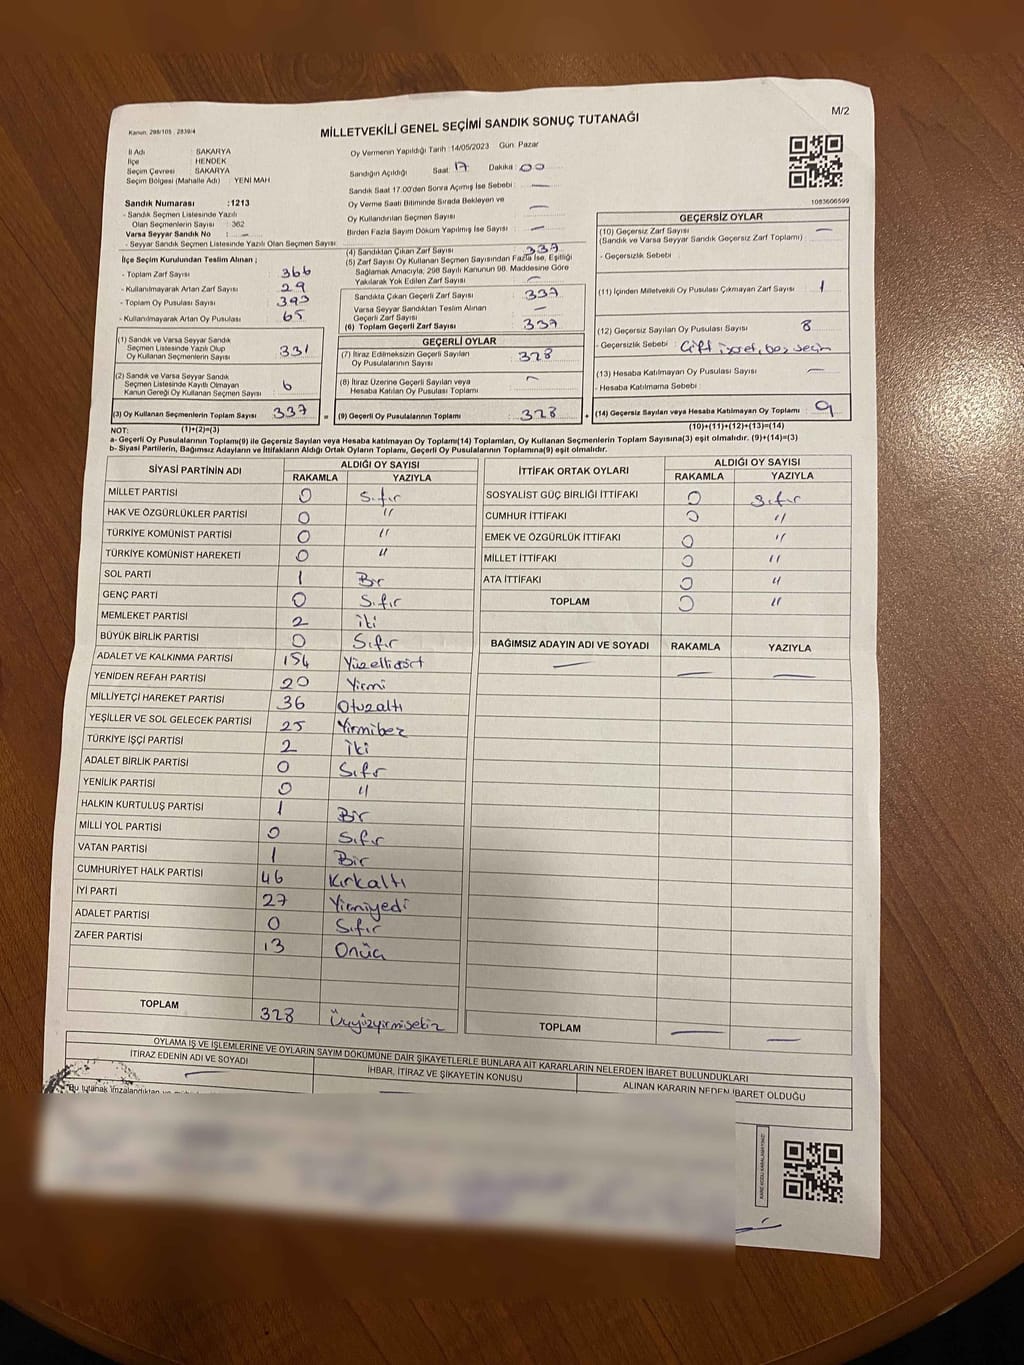 M/2
Kanun. 298/105 , 2839/4
MİLLETVEKİLİ GENEL SEÇİMİ SANDIK SONUÇ TUTANAĞI
İl Adı : SAKARYA
İlçe : HENDEK
Seçim Çevresi : SAKARYA
Seçim Bölgesi (Mahalle Adı) : YENİ MAH
Sandık Numarası :1213
- Sandık Seçmen Listesinde Yazılı
Olan Seçmenlerin Sayısı : 362
Varsa Seyyar Sandık No : —
- Seyyar Sandık Seçmen Listesinde Yazılı Olan Seçmen Sayısı
Oy Vermenin Yapıldığı Tarih :14/05/2023 Gün: Pazar
Sandığın Açıldığı Saat: 17 Dakika : 00
Sandık Saat 17.00'den Sonra Açımış İse Sebebi : —
Oy Verme Saati Bitiminde Sırada Bekleyen ve
Oy Kullandırılan Seçmen Sayısı —
Birden Fazla Sayım Döküm Yapılmış İse Sayısı : —
1083606599
İlçe Seçim Kurulundan Teslim Alınan ;
- Toplam Zarf Sayısı : 366
- Kullanılmayarak Artan Zarf Sayısı : 29
- Toplam Oy Pusulası Sayısı : 393
- Kullanılmayarak Artan Oy Pusulası : 65
(1) Sandık ve Varsa Seyyar Sandık
Seçmen Listesinde Yazılı Olup
Oy Kullanan Seçmenlerin Sayısı : 331
(2) Sandık ve Varsa Seyyar Sandık
Seçmen Listesinde Kayıtlı Olmayan
Kanun Gereği Oy Kullanan Seçmen Sayısı : 6
(3) Oy Kullanan Seçmenlerin Toplam Sayısı : 337
(4) Sandıktan Çıkan Zarf Sayısı : 337
(5) Zarf Sayısı Oy Kullanan Seçmen Sayısından Fazla İse, Eşitliği
Sağlamak Amacıyla, 298 Sayılı Kanunun 98. Maddesine Göre
Yakılarak Yok Edilen Zarf Sayısı : —
Sandıkta Çıkan Geçerli Zarf Sayısı : 337
Varsa Seyyar Sandıktan Teslim Alınan
Geçerli Zarf Sayısı : —
(6) Toplam Geçerli Zarf Sayısı : 337
GEÇERLİ OYLAR
(7) İtiraz Edilmeksizin Geçerli Sayılan
Oy Pusulalarının Sayısı : 328
(8) İtiraz Üzerine Geçerli Sayılan veya
Hesaba Katılan Oy Pusulası Toplamı : —
= (9) Geçerli Oy Pusulalarının Toplamı : 328
GEÇERSİZ OYLAR
(10) Geçersiz Zarf Sayısı : —
(Sandık ve Varsa Seyyar Sandık Geçersiz Zarf Toplamı)
- Geçersizlik Sebebi :
(11) İçinden Milletvekili Oy Pusulası Çıkmayan Zarf Sayısı : 1
(12) Geçersiz Sayılan Oy Pusulası Sayısı : 8
- Geçersizlik Sebebi : Çift işret, boş seçim
(13) Hesaba Katılmayan Oy Pusulası Sayısı : —
- Hesaba Katılmama Sebebi :
+ (14) Geçersiz Sayılan veya Hesaba Katılmayan Oy Toplamı : 9
NOT: (1)+(2)=(3) (10)+(11)+(12)+(13)=(14)
a- Geçerli Oy Pusulalarının Toplamı(9) ile Geçersiz Sayılan veya Hesaba katılmayan Oy Toplamı(14) Toplamları, Oy Kullanan Seçmenlerin Toplam Sayısına(3) eşit olmalıdır. (9)+(14)=(3)
b- Siyasi Partilerin, Bağımsız Adayların ve İttifakların Aldığı Ortak Oyların Toplamı, Geçerli Oy Pusulalarının Toplamına(9) eşit olmalıdır.
SİYASİ PARTİNİN ADI ALDIĞI OY SAYISI
RAKAMLA YAZIYLA
MİLLET PARTİSİ 0 Sıfır
HAK VE ÖZGÜRLÜKLER PARTİSİ 0 "
TÜRKİYE KOMÜNİST PARTİSİ 0 "
TÜRKİYE KOMÜNİST HAREKETİ 0 "
SOL PARTİ 1 Bir
GENÇ PARTİ 0 Sıfır
MEMLEKET PARTİSİ 2 iki
BÜYÜK BİRLİK PARTİSİ 0 Sıfır
ADALET VE KALKINMA PARTİSİ 154 Yüzellidört
YENİDEN REFAH PARTİSİ 20 Yirmi
MİLLİYETÇİ HAREKET PARTİSİ 36 Otuzaltı
YEŞİLLER VE SOL GELECEK PARTİSİ 25 Yirmibeş
TÜRKİYE İŞÇİ PARTİSİ 2 İki
ADALET BİRLİK PARTİSİ 0 Sıfır
YENİLİK PARTİSİ 0 "
HALKIN KURTULUŞ PARTİSİ 1 Bir
MİLLİ YOL PARTİSİ 0 Sıfır
VATAN PARTİSİ 1 Bir
CUMHURİYET HALK PARTİSİ 46 Kırkaltı
İYİ PARTİ 27 Yirmiyedi
ADALET PARTİSİ 0 Sıfır
ZAFER PARTİSİ 13 Onüç
TOPLAM 328 Üçyüzyirmisekiz
İTTİFAK ORTAK OYLARI ALDIĞI OY SAYISI
RAKAMLA YAZIYLA
SOSYALİST GÜÇ BİRLİĞİ İTTİFAKI 0 Sıfır
CUMHUR İTTİFAKI 0 "
EMEK VE ÖZGÜRLÜK İTTİFAKI 0 "
MİLLET İTTİFAKI 0 "
ATA İTTİFAKI 0 "
TOPLAM 0 "
BAĞIMSIZ ADAYIN ADI VE SOYADI RAKAMLA YAZIYLA
— — —
TOPLAM — —
OYLAMA İŞ VE İŞLEMLERİNE VE OYLARIN SAYIM DÖKÜMÜNE DAİR ŞİKAYETLERLE BUNLARA AİT KARARLARIN NELERDEN İBARET BULUNDUKLARI
İTİRAZ EDENİN ADI VE SOYADI İHBAR, İTİRAZ VE ŞİKAYETİN KONUSU ALINAN KARARIN NEDEN İBARET OLDUĞU
Bu tutanak imzalandıktan